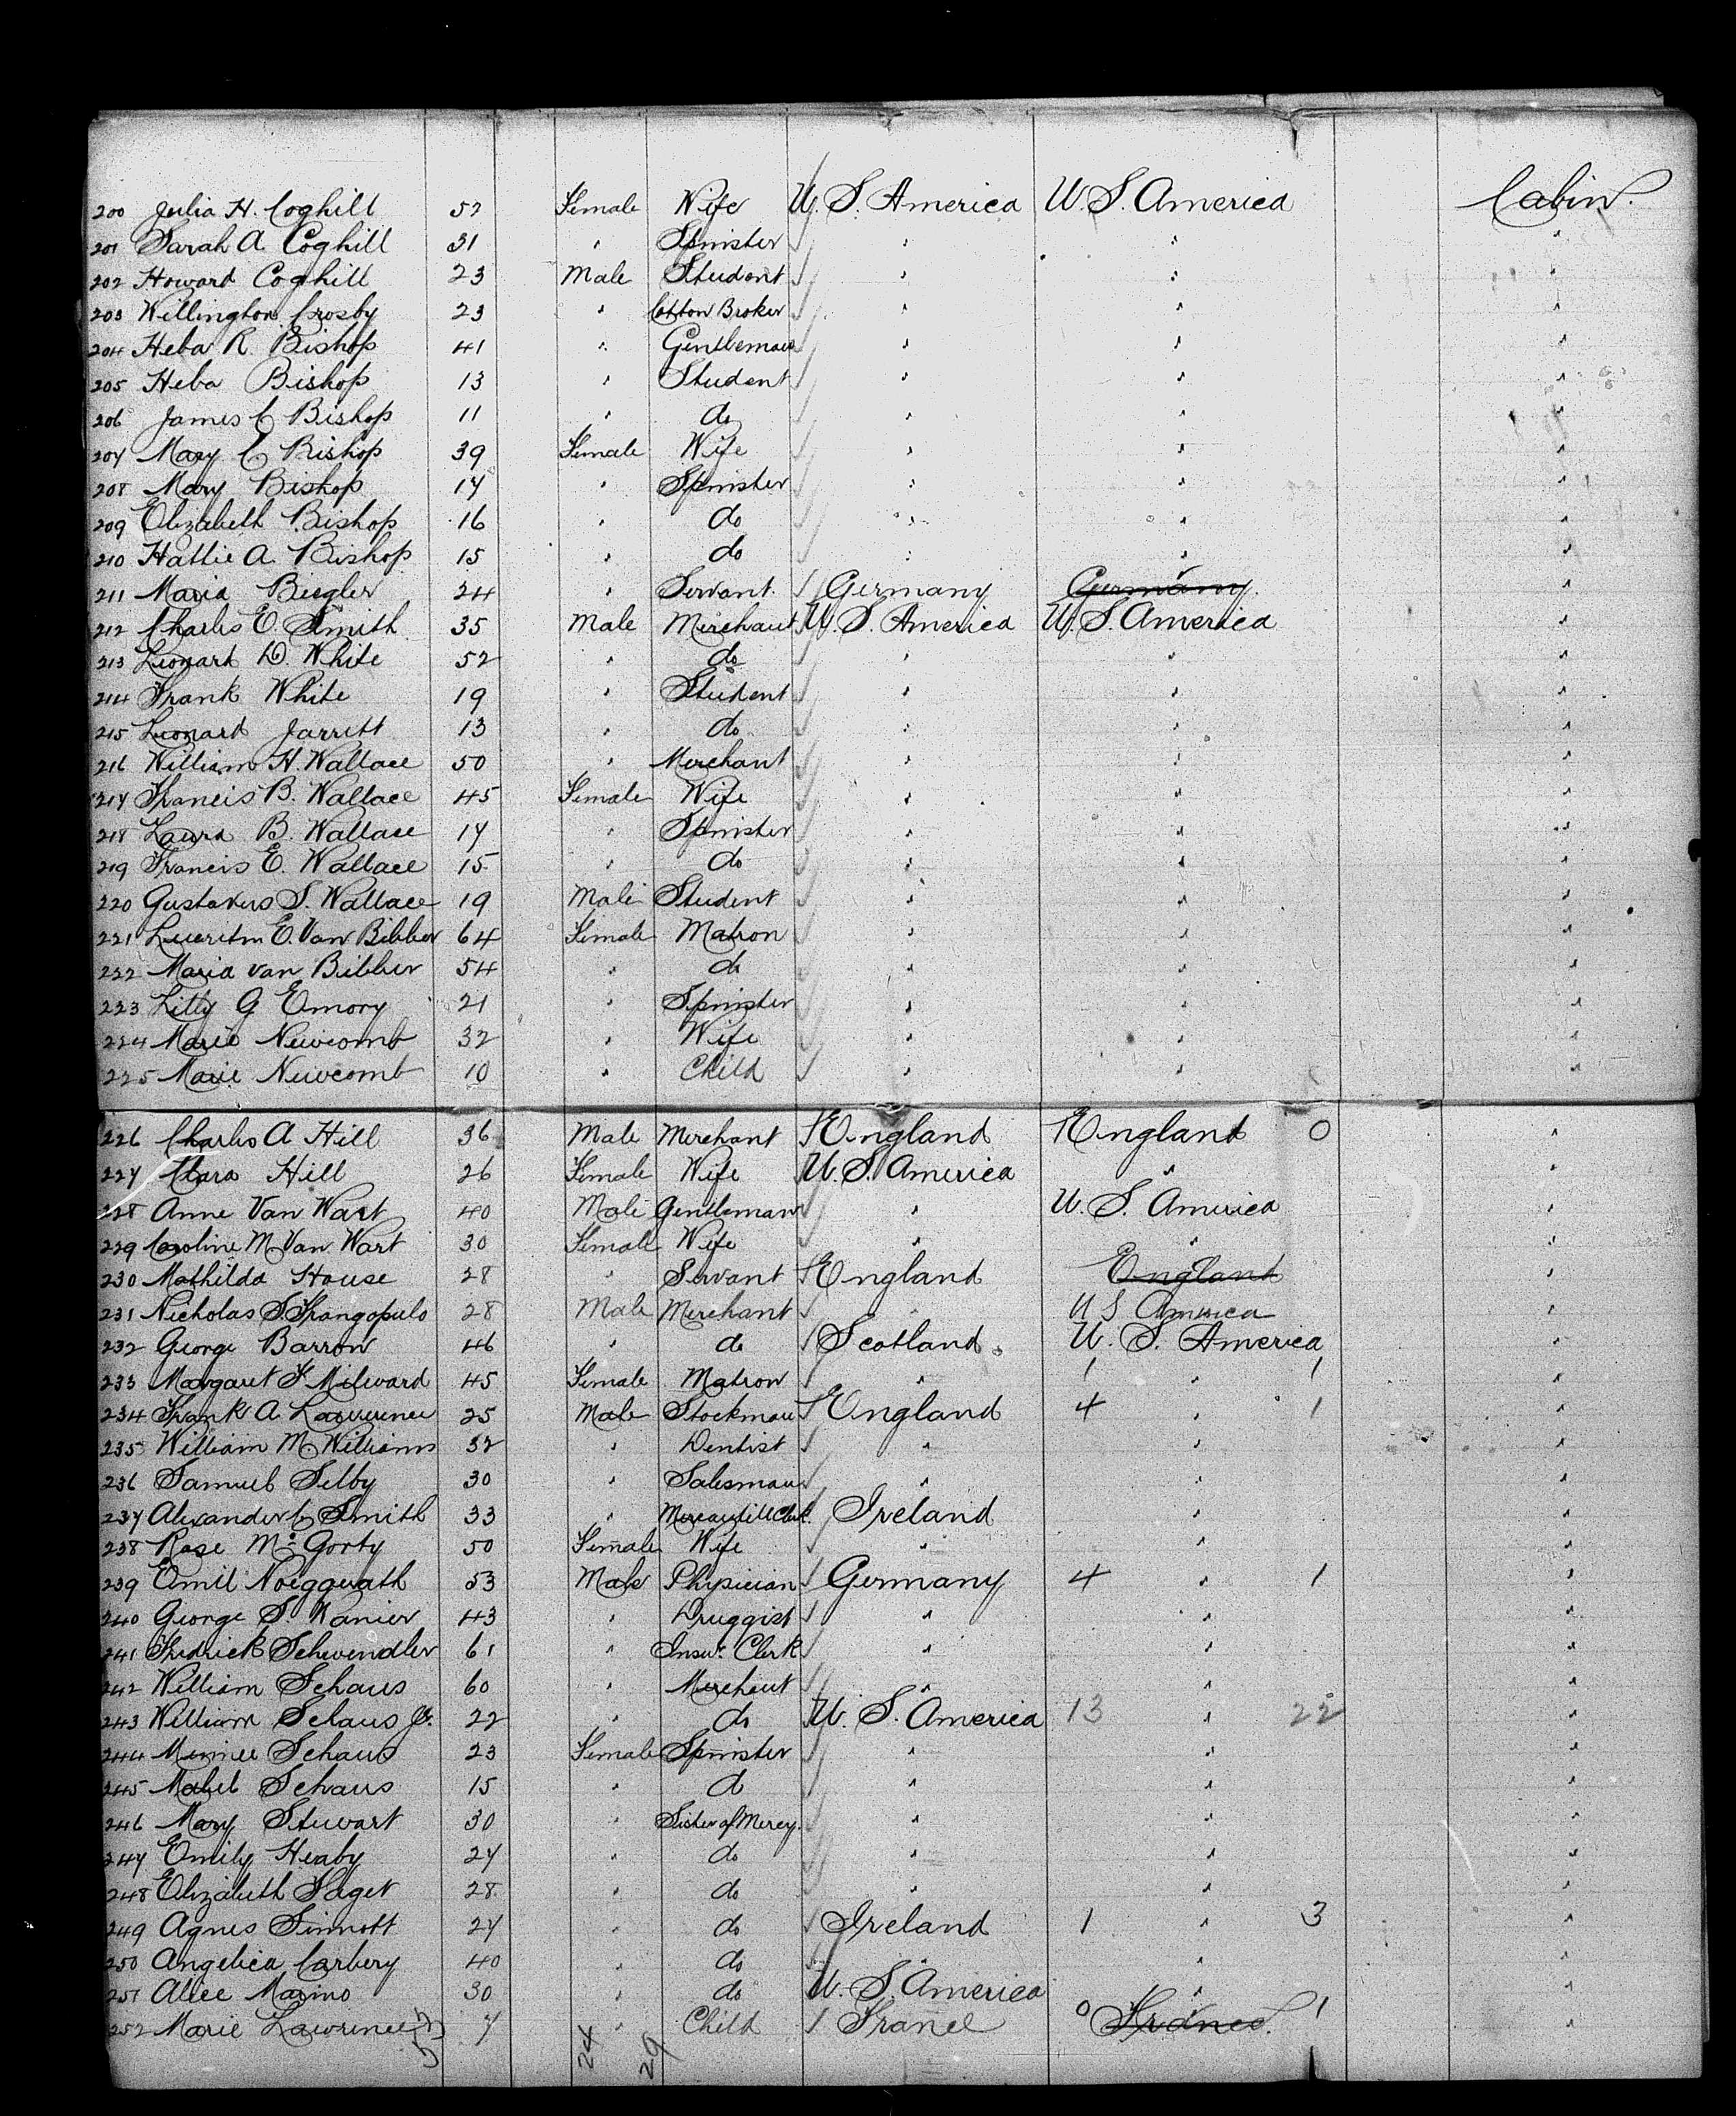 200 Julia H. Coghill 52 Female Wife U.S. America U.S. America Cabin.
201 Sarah A Coghill 31 " Spinster " " "
202 Howard Coghill 23 Male Student " " "
203 Willington Crosby 23 " Cotton Broker " " "
204 Heba R. Bishop 41 " Gentleman " " "
205 Heba Bishop 13 " Student " " "
206 James C Bishop 11 " do " " "
207 Mary C. Bishop 39 Female Wife " " "
208 Mary Bishop 17 " Spinster " " "
209 Elizabeth Bishop 16 " do " " "
210 Hattie A. Bishop 15 " do " " "
211 Maria Biegler 24 " Servant. Germany Germany. "
212 Charles E. Smith 35 Male Merchant U.S. America U.S. America "
213 Leonard D. White 52 " do " " "
214 Frank White 19 " Student " " "
215 Leonard Jarritt 13 " do " " "
216 William H. Wallace 50 " Merchant " " "
217 Francis B. Wallace 45 Female Wife " " "
218 Laura B. Wallace 17 " Spinster " " "
219 Francis E. Wallace 15 " do " " "
220 Gustavus S. Wallace 19 Male Student " " "
221 E. Van Bibber 64 Female Matron " " "
222 Maria van Bibber 54 " do " " "
223 Litty G Emory 21 " Spinster " " "
224 Marie Newcomb 32 " Wife " " "
225 Marie Newcomb 10 " Child " " "
226 Charles A Hill 36 Male Merchant England England 0 "
227 Clara Hill 26 Female Wife U.S. America " "
228 Anne Van Wart 40 Male Gentleman " U.S. America "
229 Caroline M. Van Wart 30 Female Wife " " "
230 Mathilda House 28 " Servant England England "
231 Nicholas S. Frangopulo 28 Male Merchant " U S America "
232 George Barron 46 " do Scotland U.S. America "
233 Margaret F Milward 45 Female Matron " 1 " 1 "
234 Frank A. Lawrence 25 Male Stockman England 4 " 1 "
235 William M. Williams 32 " Dentist " " "
236 Samuel Selby 30 " Salesman " " "
237 Alexander C Smith 33 " Mercantill Clerk Ireland " "
238 Rose McGorty 50 Female Wife " " "
239 Emil Noeggerath 53 Male Physician Germany 4 " 1 "
240 George S. 43 " Druggist " " "
241 Fredrick Schwendler 61 " Insur. Clerk " " "
242 William Schaus 60 " Merchant " " "
243 William Schaus Jr. 22 " do U.S. America 13 " 22 "
244 Minnie Schaus 23 Female Spinster " " "
245 Mabel Schaus 15 " do " " "
246 Mary Stewart 30 " Sister of Mercy. " " "
247 Emily Heaby 27 " do " " "
248 Elizabeth 28 " do " " "
249 Agnes Sinnott 27 " do Ireland 1 " 3 "
250 Angelica Carbery 40 " do " " "
251 Alice Marmo 30 " do U.S. America " "
252 Marie Lawrence 7 " Child France 0 France. 1 "
24 29